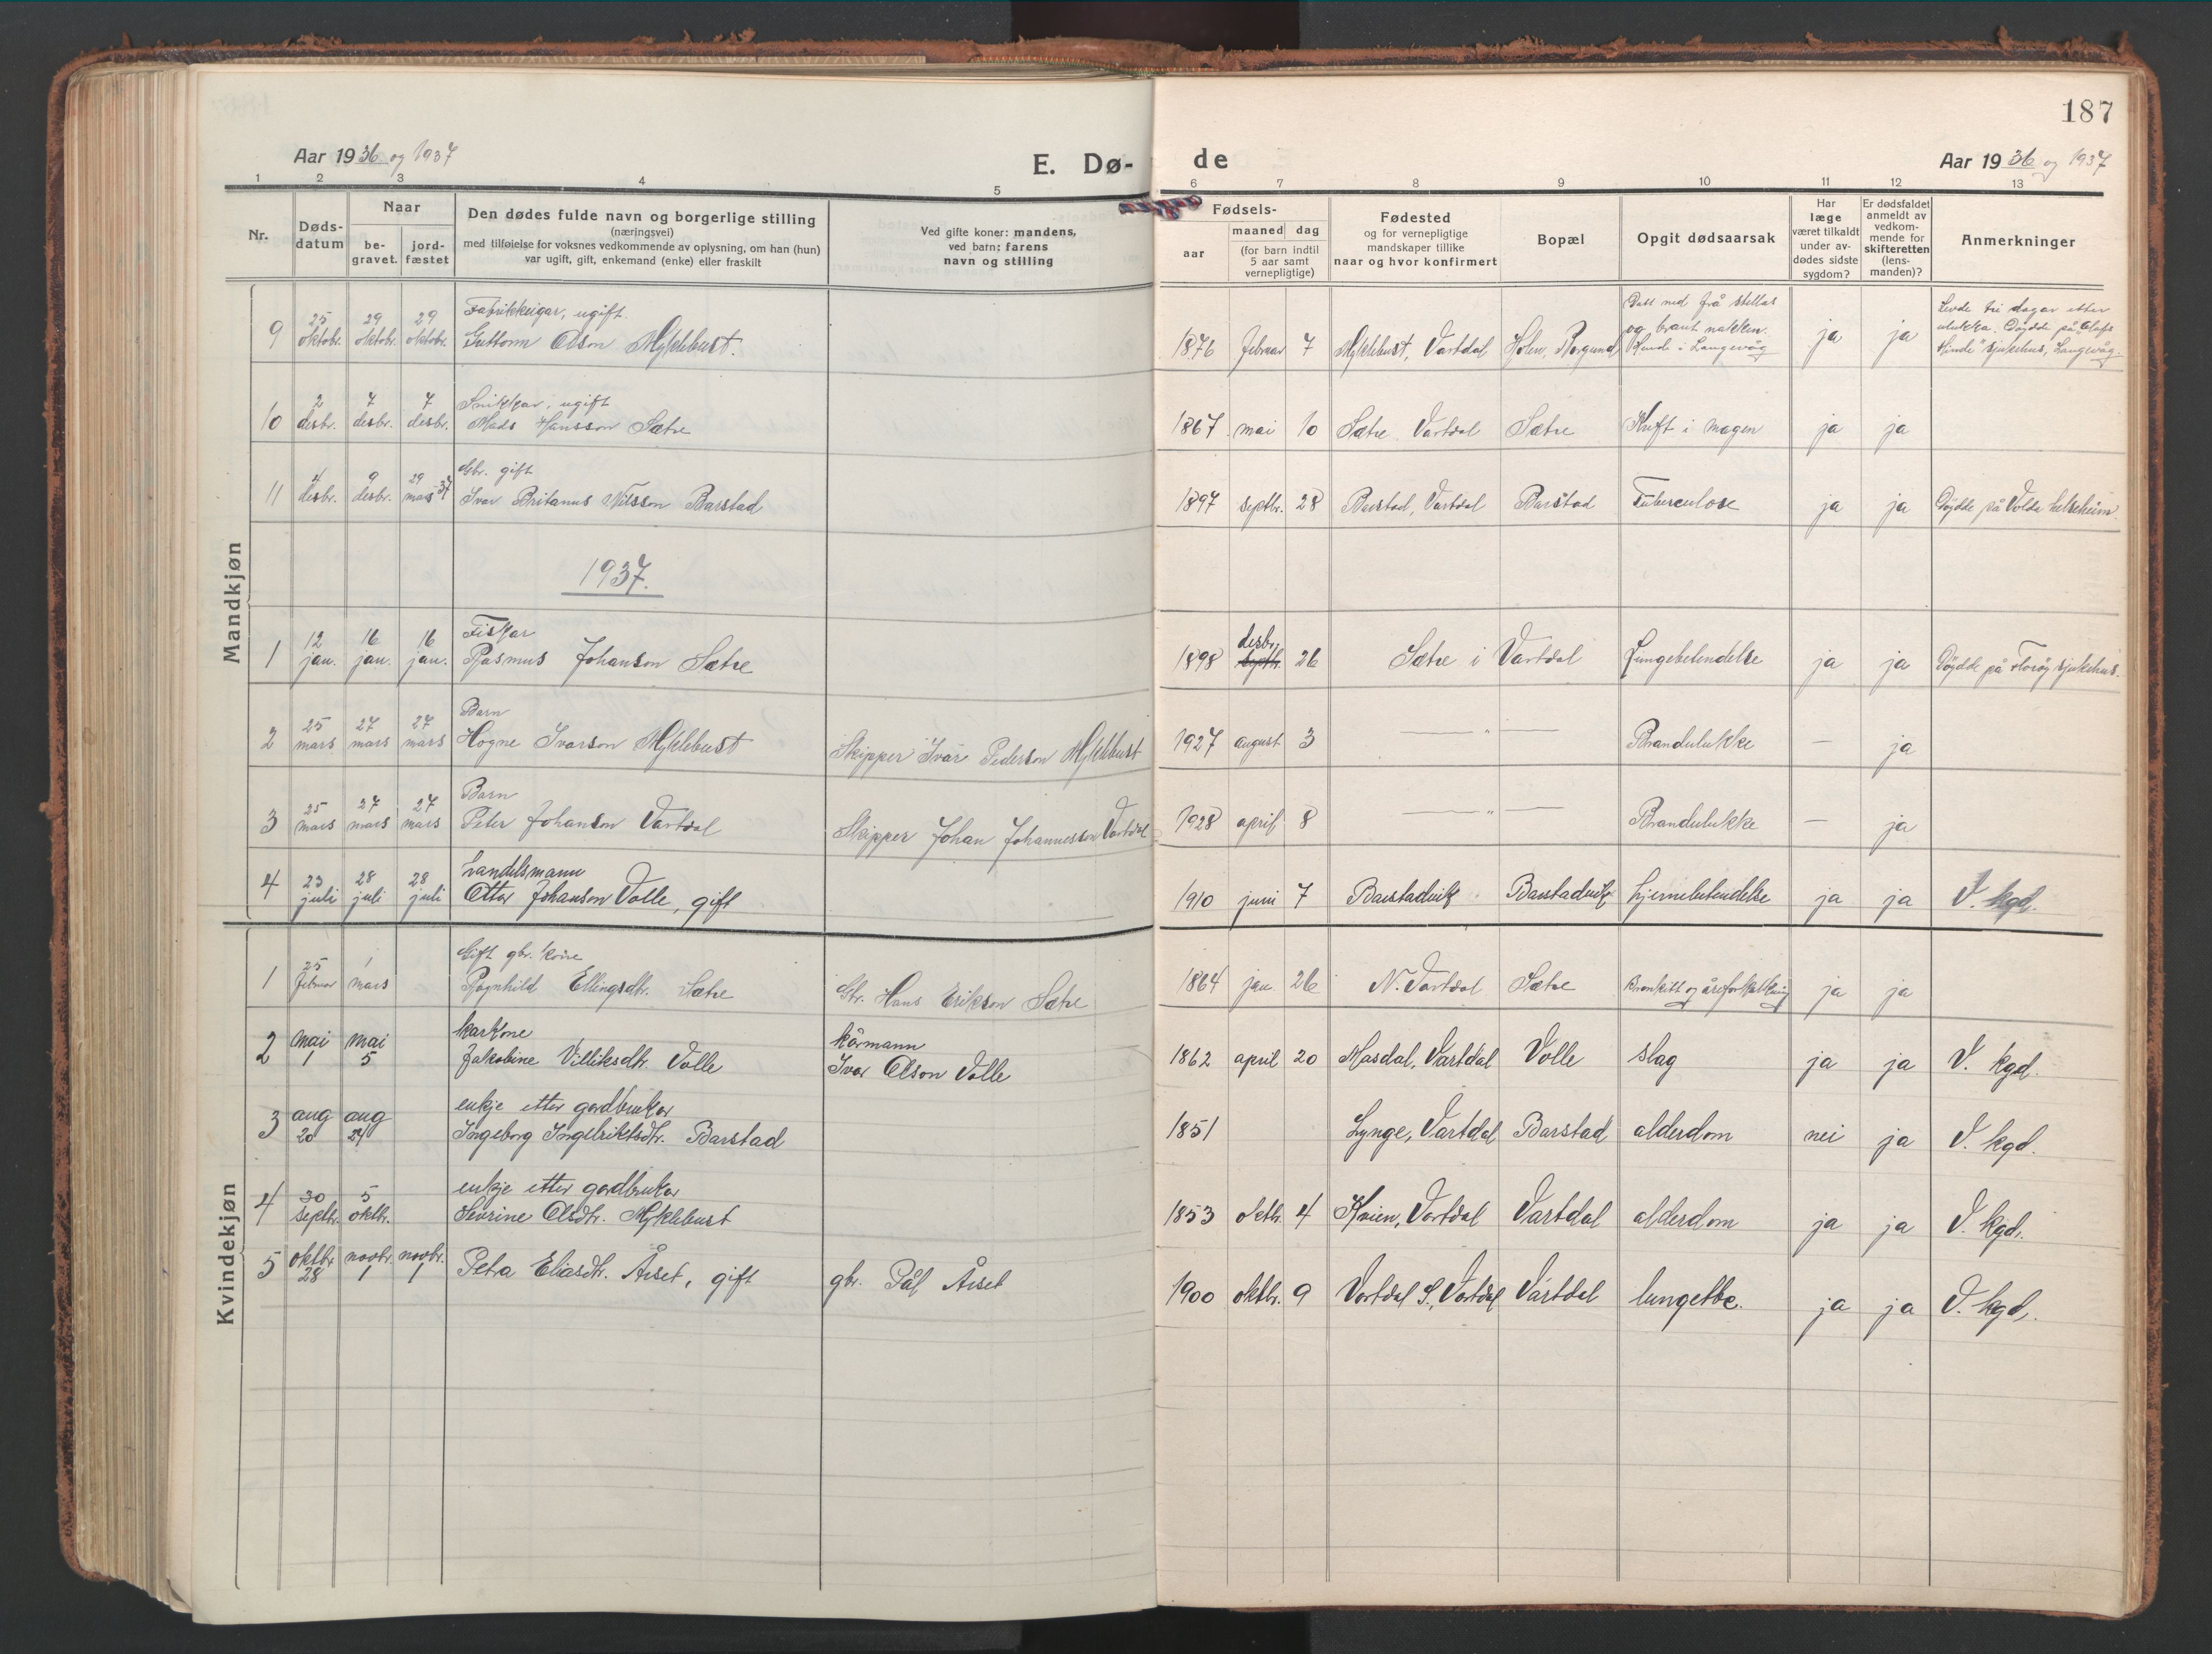 187
Aar 1936 og 1937
E. Dø-
de
Aar 1936 og 1937
1 2 3 4 5 6 7 8 9 10 11 12 13
Nr.
Døds-
datum
Naar
be-
gravet.
jord-
fæstet
Den dødes fulde navn og borgerlige stilling
(næringsvei)
med tilføielse for voksnes vedkommende av oplysning, om han (hun)
var ugift, gift, enkemand (enke) eller fraskilt
Ved gifte koner: mandens,
ved barn: farens
navn og stilling
Fødsels-
aar
maaned dag
(for barn indtil
5 aar samt
vernepligtige)
Fødested
og for vernepligtige
mandskaper tillike
naar og hvor konfirmert
Bopæl
Opgit dødsaarsak
Har
læge
været tilkaldt
under av-
dødes sidste
sygdom?
Er dødsfaldet
anmeldt av
vedkom-
mende for
skifteretten
(lens-
manden)?
Anmerkninger
Mandkjøn
9
25
oktobr.
29
oktobr.
29
oktobr.
Fabrikkeigar, ugift.
Guttorm Olson Myklebust.
1876 februar 7
Myklebust, Vartdal
Holen, Borgund
Datt ned frå stellas
og braut nakken.
Hende i Langevåg
ja
ja
Levde tri dagar etter
ulukka. Døydde på "Olafs
Minde" sjukehus, Langevåg.
10
2
desbr.
7
desbr.
7
desbr.
Snikkar, ugift
Mads Hansson Sætre
1867 mai 10
Sætre Vartdal
Sætre
Kreft i magen
ja
ja
11
4
desbr.
9
desbr.
29
mars 37
Gbr. gift
Ivar Britanus Nilsson Barstad
1897 septbr. 28
Barstad, Vartdal
Barstad
Tuberculose
ja
ja
Døydde på Volda helseheim.
1937.
1
12
jan.
16
jan.
16
jan.
Fiskar
Rasmus Johanson Sætre
1898
desbr.
septbr. 26
Sætre i Vartdal
Lungebetendelse
ja
ja
Døydde på Florøy sjukehus.
2
25
mars
27
mars
27
mars
Barn
Hogne Ivarson Myklebust
Skipper Ivar Pederson Myklebust
1927 august 3
— " —
Brandulukke
—
ja
3
25
mars
27
mars
27
mars
Barn
Peter Johanson Vartdal
Skipper Johan Johannesson Vartdal
1928 april 8
— " —
Brandulukke
—
ja
4
23
juli
28
juli
28
juli
handelsmann
Ottar Johanson Volle, gift
1910 juni 7
Barstadvik
Barstadvik
hjernebetendelse
ja
ja
V. kgd.
Kvindekjøn
1
25
februar
1
mars
Gift gbr. kone
Ragnhild Ellingsdtr. Sætre
Gbr. Hans Erikson Sætre
1864 jan 26
N. Vartdal
Sætre
Bronkitt og åreforkalkning
ja
ja
2
mai
1
mai
5
kårkone
Jakobine Villiksdtr. Volle
kårmann
Ivar Olson Volle
1862 april 20
Masdal, Vartdal
Volle
slag
ja
ja
V. kgd.
3
aug
20
aug
24
enkje etter gardbrukar
Ingeborg Ingebriktsdtr. Barstad
1851
Lynge, Vartdal
Barstad
alderdom
nei
ja
V. kgd.
4
30
septbr.
5
oktbr.
enkje etter gardbrukar
Sevrine Olsdtr. Myklebust
1853 oktbr. 4
Kvien, Vartdal
Vartdal
alderdom
ja
ja
V. kgd.
5
oktbr
28
novbr.
1
novbr.
1
Petra Eliasdtr. Årset, gift
gbr. Pål Årset
1900 oktbr. 9
Vartdal S., Vartdal
Vartdal
lungetbc.
ja
ja
V. kgd.